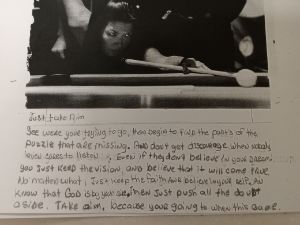 Just take Aim
See were your trying to go, then begin to find the part's of the
puzzle that are missing. And don't get discourage when nobody
even cares to listen. Even if they don't believe in your dreams,
you just keep the vision, and believe that it will come true.
No matter what, just keep the faith and believe in your self. And
know that God is by you side, then just push all the doubt
aside. Take aim, because your going to when this game.